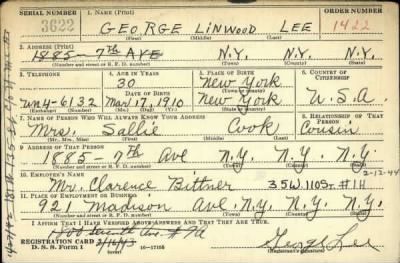 SERIAL NUMBER 1. NAME (Print) ORDER NUMBER
3622 GEORGE LINWOOD LEE 1422
(First) (Middle) (Last)
2. ADDRESS (Print)
1885 - 7th AVE N.Y. N.Y.
(Number and street or R. F. D. number) (Town) (County) (State)
3. TELEPHONE 4. AGE IN YEARS 5. PLACE OF BIRTH 6. COUNTRY OF CITIZENSHIP
30 New York
DATE OF BIRTH (Town or county)
UN4-6132 Mar 17, 1910 New York U.S.A.
(Exchange) (Number) (Mo.) (Day) (Yr.) (State or country)
7. NAME OF PERSON WHO WILL ALWAYS KNOW YOUR ADDRESS 8. RELATIONSHIP OF THAT PERSON
Mrs. Sallie Cook Cousin
(Mr., Mrs., Miss) (First) (Middle) (Last)
9. ADDRESS OF THAT PERSON
1885 - 7th Ave N.Y. N.Y. N.Y.
(Number and street or R. F. D. number) (Town) (County) (State)
10. EMPLOYER'S NAME 2-12-44
Mr. Clarence Bittner 35 W. 110 St. #1H
11. PLACE OF EMPLOYMENT OR BUSINESS
921 Madison Ave. N.Y. N.Y. N.Y.
(Number and street or R. F. D. number) (Town) (County) (State)
I AFFIRM THAT I HAVE VERIFIED ABOVE ANSWERS AND THAT THEY ARE TRUE.
REGISTRATION CARD
D. S. S. Form 1 16-17105 George Lee
(Registrant's signature)